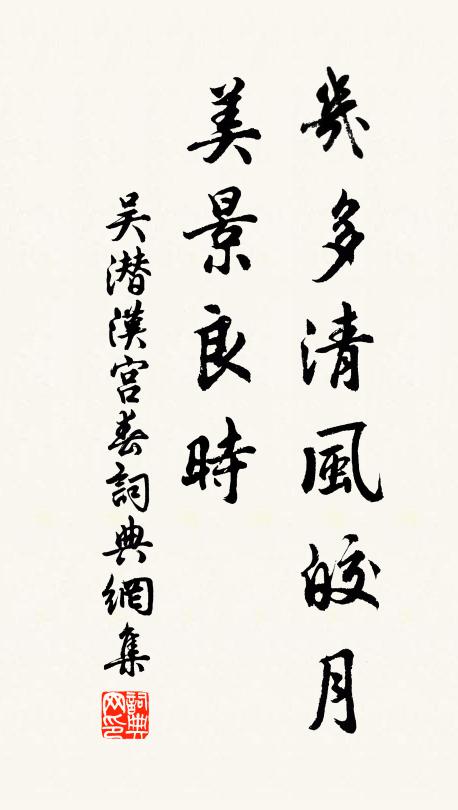 幾多清風皎月
美景良時
吳潛漢宮春詞典網集
詞典網印